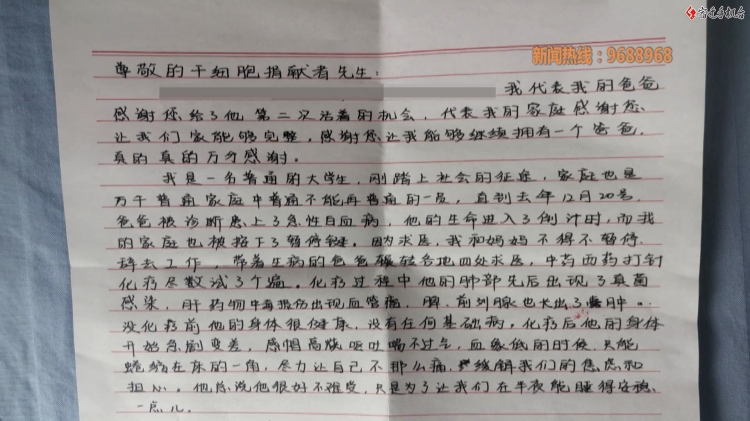 新闻热线：9688968
尊敬的干细胞捐献者先生：
我代表我的爸爸
感谢您给了他第二次活着的机会，代表我的家庭感谢您、
让我们家能够完整，感谢您让我能够继续拥有一个爸爸，
真的真的万分感谢。
我是一名普通的大学生，刚踏上社会的征途，家庭也是
万千普通家庭中普通不能再普通的一员，直到去年12月20号，
爸爸被诊断患上了急性白血病，他的生命进入了倒计时，而我
的家庭也被按下了暂停键。因为求医，我和妈妈不得不暂停
辞去工作，带着生病的爸爸辗转各地四处求医，中药西药打针
化疗尽数试了个遍。化疗过程中他的肺部先后出现了真菌
感染，肝药物损伤出现血管瘤，脾、前列腺也长出了肿
没化疗前他的身体很健康，没有任何基础病。化疗后他的身体
开始急剧变差，高烧呕吐喘不过气，血象低的时候，只能
蜷缩在床的一角，尽力让自己不那么痛，缓解我们的焦虑和
担心。他总说他很好不难受，只是为了让我们在半夜能睡得安稳
一点儿。